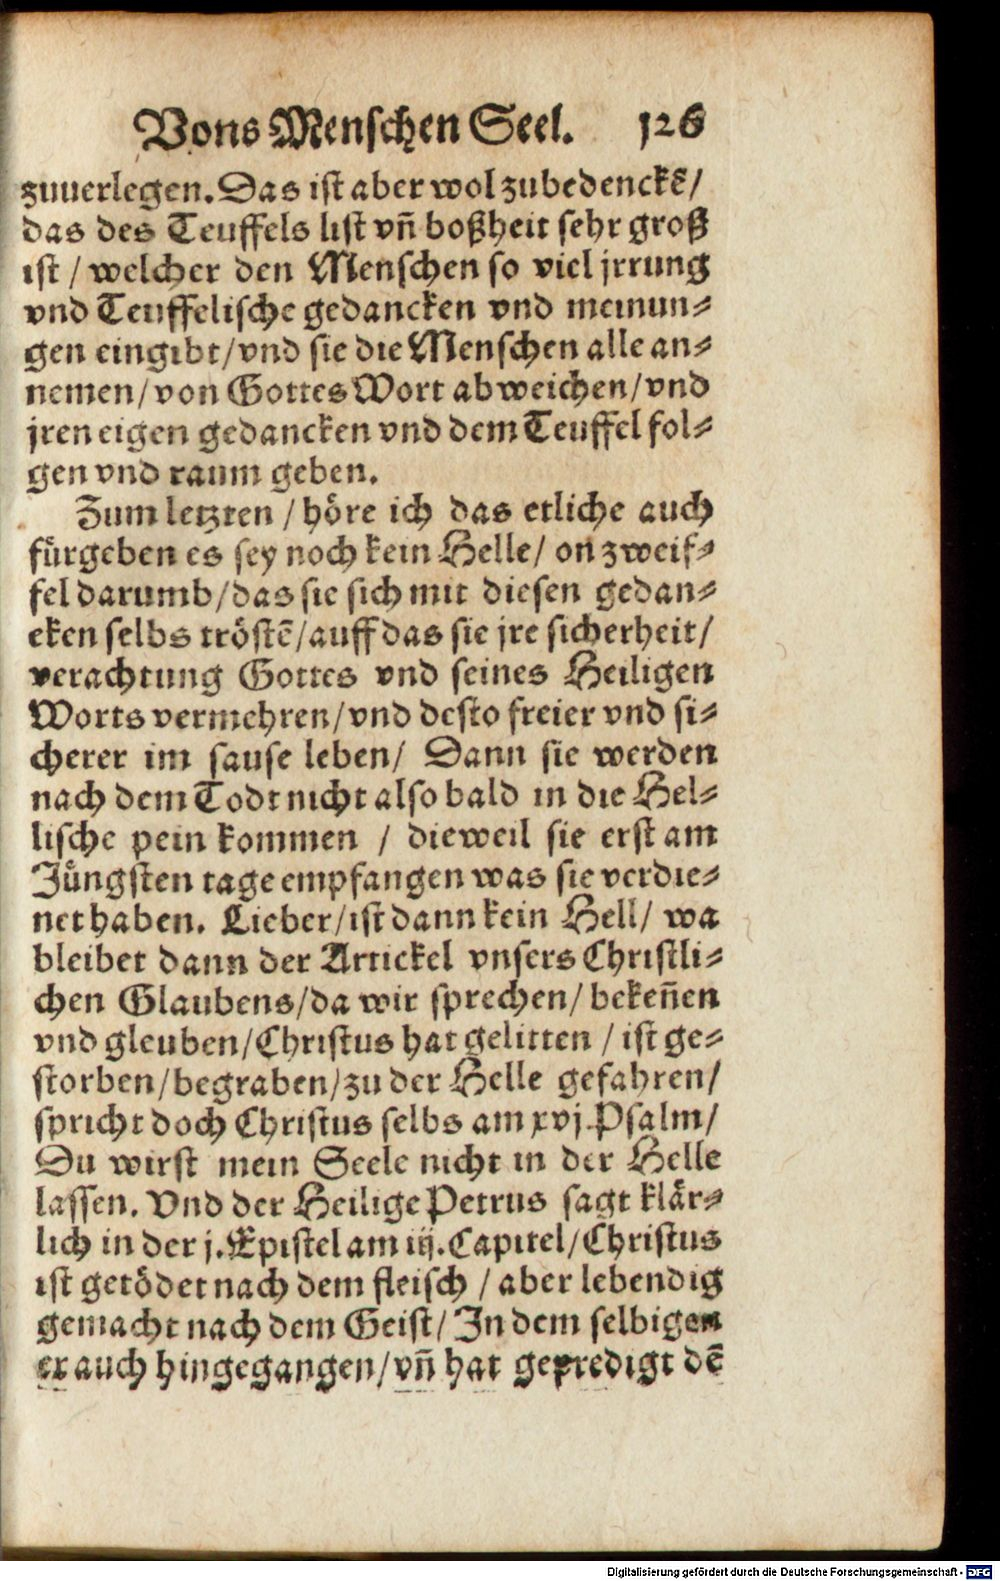 Vons Menschen Seel. 126
zuuerlegen. Das ist aber wol zubedenckẽ/
das des Teuffels list vñ boßheit sehr groß
ist / welcher den Menschen so viel jrrung
vnd Teuffelische gedancken vnd meinun⸗
gen eingibt/vnd sie die Menschen alle an⸗
nemen/von Gottes Wort abweichen/vnd
jren eigen gedancken vnd dem Teuffel fol⸗
gen vnd raum geben.
Zum letzten / höre ich das etliche auch
fürgeben es sey noch kein Helle/ on zweif⸗
fel darumb/das sie sich mit diesen gedan⸗
cken selbs tröstẽ/auff das sie jre sicherheit/
verachtung Gottes vnd seines Heiligen
Worts vermehren/vnd desto freier vnd si⸗
cherer im sause leben/ Dann sie werden
nach dem Todt nicht also bald in die Hel⸗
lische pein kommen / dieweil sie erst am
Jüngsten tage empfangen was sie verdie⸗
net haben. Lieber/ist dann kein Hell/ wa
bleibet dann der Artickel vnsers Christli⸗
chen Glaubens/da wir sprechen/ bekeñen
vnd gleuben/Christus hat gelitten / ist ge⸗
storben/begraben/zu der Helle gefahren/
spricht doch Christus selbs am xvj. Psalm/
Du wirst mein Seele nicht in der Helle
lassen. Vnd der Heilige Petrus sagt klär⸗
lich in der j. Epistel am iij. Capitel/Christus
ist getödet nach dem fleisch / aber lebendig
gemacht nach dem Geist/ In dem selbigen
er auch hingegangen/vñ hat gepredigt dẽ
Digitalisierung gefördert durch die Deutsche Forschungsgemeinschaft - DFG